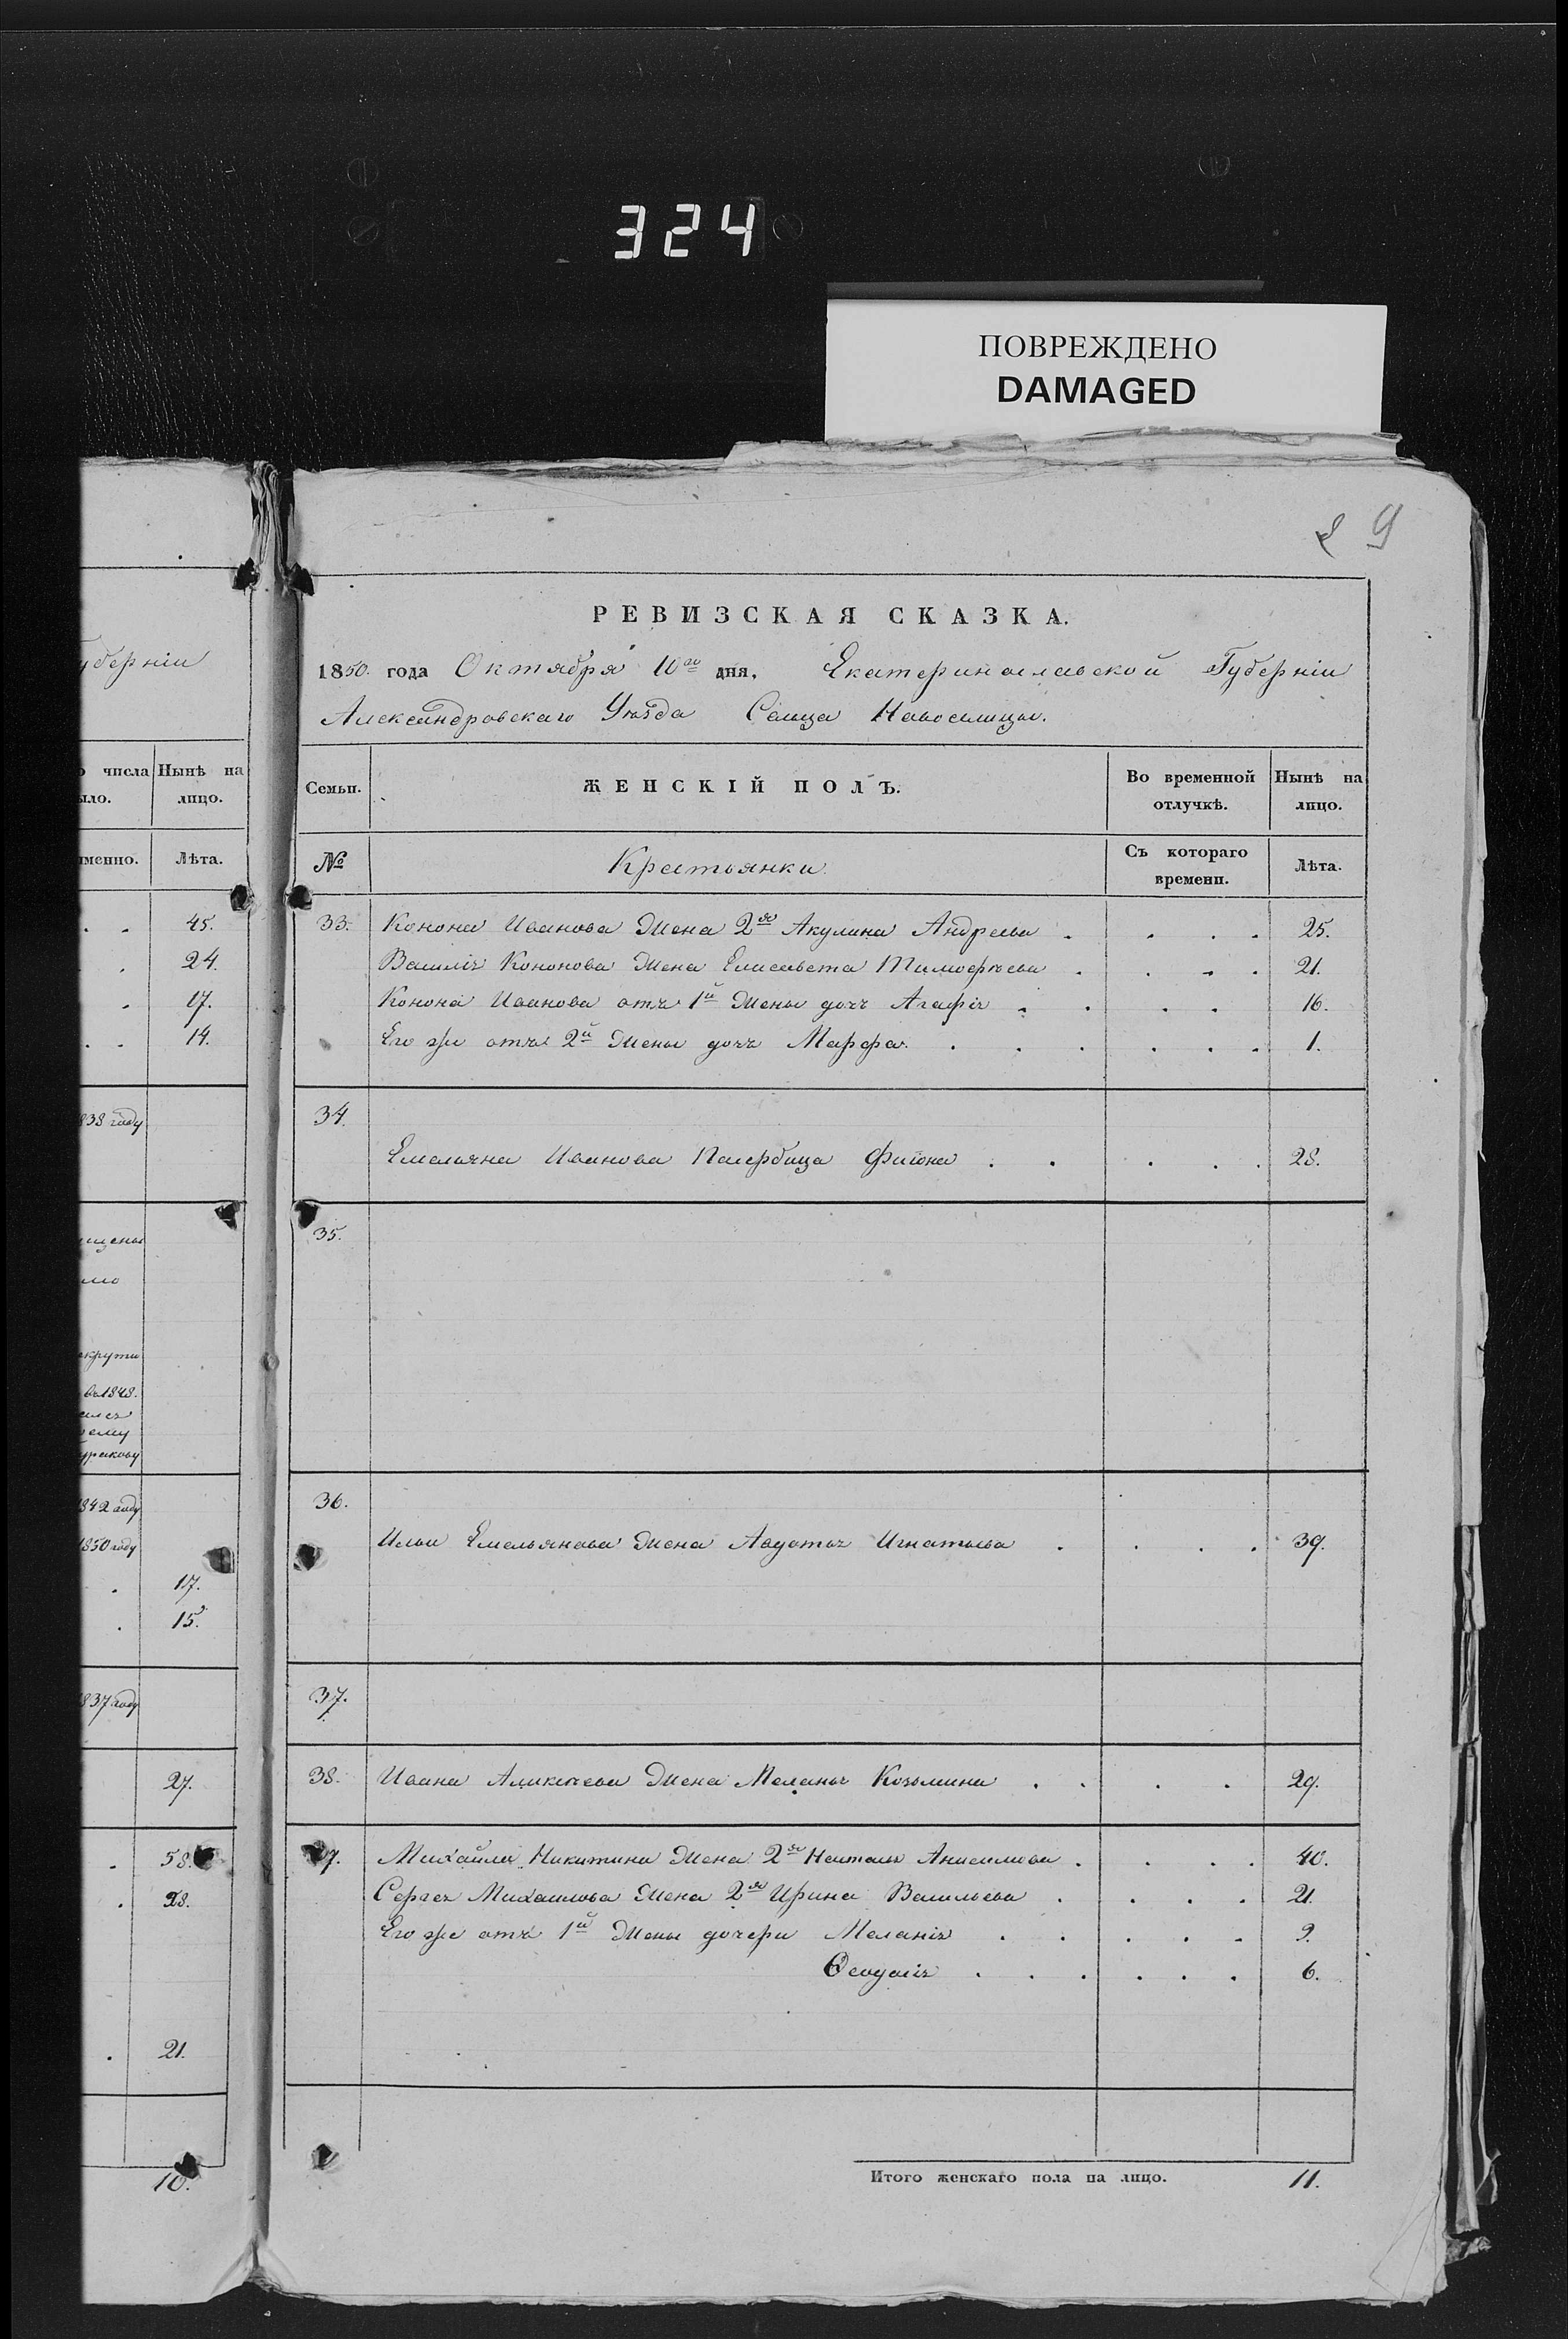 324
ПОВРЕЖДЕНО
DAMAGED
9
РЕВИЗСКАЯ СКАЗКА.
1850. года Октября 10го дня, Екатеринославской Губерніи
Александровскаго Уѣзда Сельца Новоселицы.
Губерніи
числа Нынѣ на
лицо.
Лѣта.
45.
24.
17.
14.
1838 году
1848.
1842 году
1850 году
17.
15.
1837 году
27.
58.
28.
21.
10.
Семьи. ЖЕНСКІЙ ПОЛЪ. Во временной отлучкѣ. Нынѣ на лицо.
№ Крестьянки Съ котораго времени. Лѣта.
33. Конона Иванова Жена 2я Акулина Андреева 25.
Василія Кононова Жена Елисавета Тимофѣева 21.
Конона Иванова отъ 1й Жены дочь Агафія 16.
Его же отъ 2й Жены дочь Марфа 1.
34.
Емельяна Иванова 28.
35.
36.
Ильи Емельянова Жена Авдотья Игнатьева 39.
37.
38. Ивана Жена Меланья Козьмина 29.
7. Михайлы Никитина Жена 2я Наталья Анисимова 40.
Сергея Михайлова Жена 2я Ирина Васильева 21.
Его же отъ 1й Жены дочери Меланія 9.
Ѳеодосія 6.
Итого женскаго пола на лицо. 11.